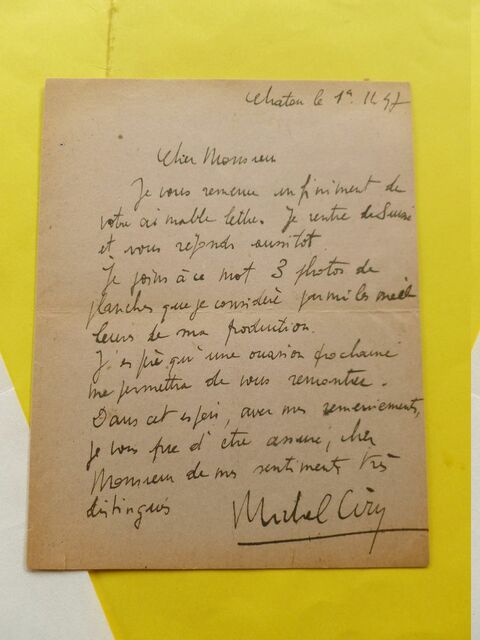 Chatou le 1er 11.47
Cher Monsieur
Je vous remercie infiniment de
votre aimable lettre. Je rentre de Suisse
et vous réponds aussitot.
Je joins à ce mot 3 photos de
planches que je considère parmi les meil
leurs de ma production.
J'espère qu'une occasion prochaine
me permettra de vous rencontrer.
Dans cet espoir, avec mes remerciements,
je vous prie d'être assuré, cher
Monsieur de mes sentiments très
distingués
Michel Ciry